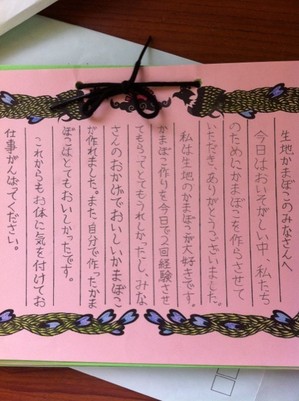 生地かまぼこのみなさんへ
今日はおいそがしい中、私たち
のためにかまぼこを作らさせて
いただき、ありがとうございました。
私は生地のかまぼこが大好きです。
かまぼこ作りを今日で2回経験させ
てもらってとてもうれしかったし、みな
さんのおかげでおいしいかまぼこ
が作れました。また、自分で作ったかま
ぼこはとてもおいしかったです。
これからもお体に気を付けてお
仕事がんばってください。